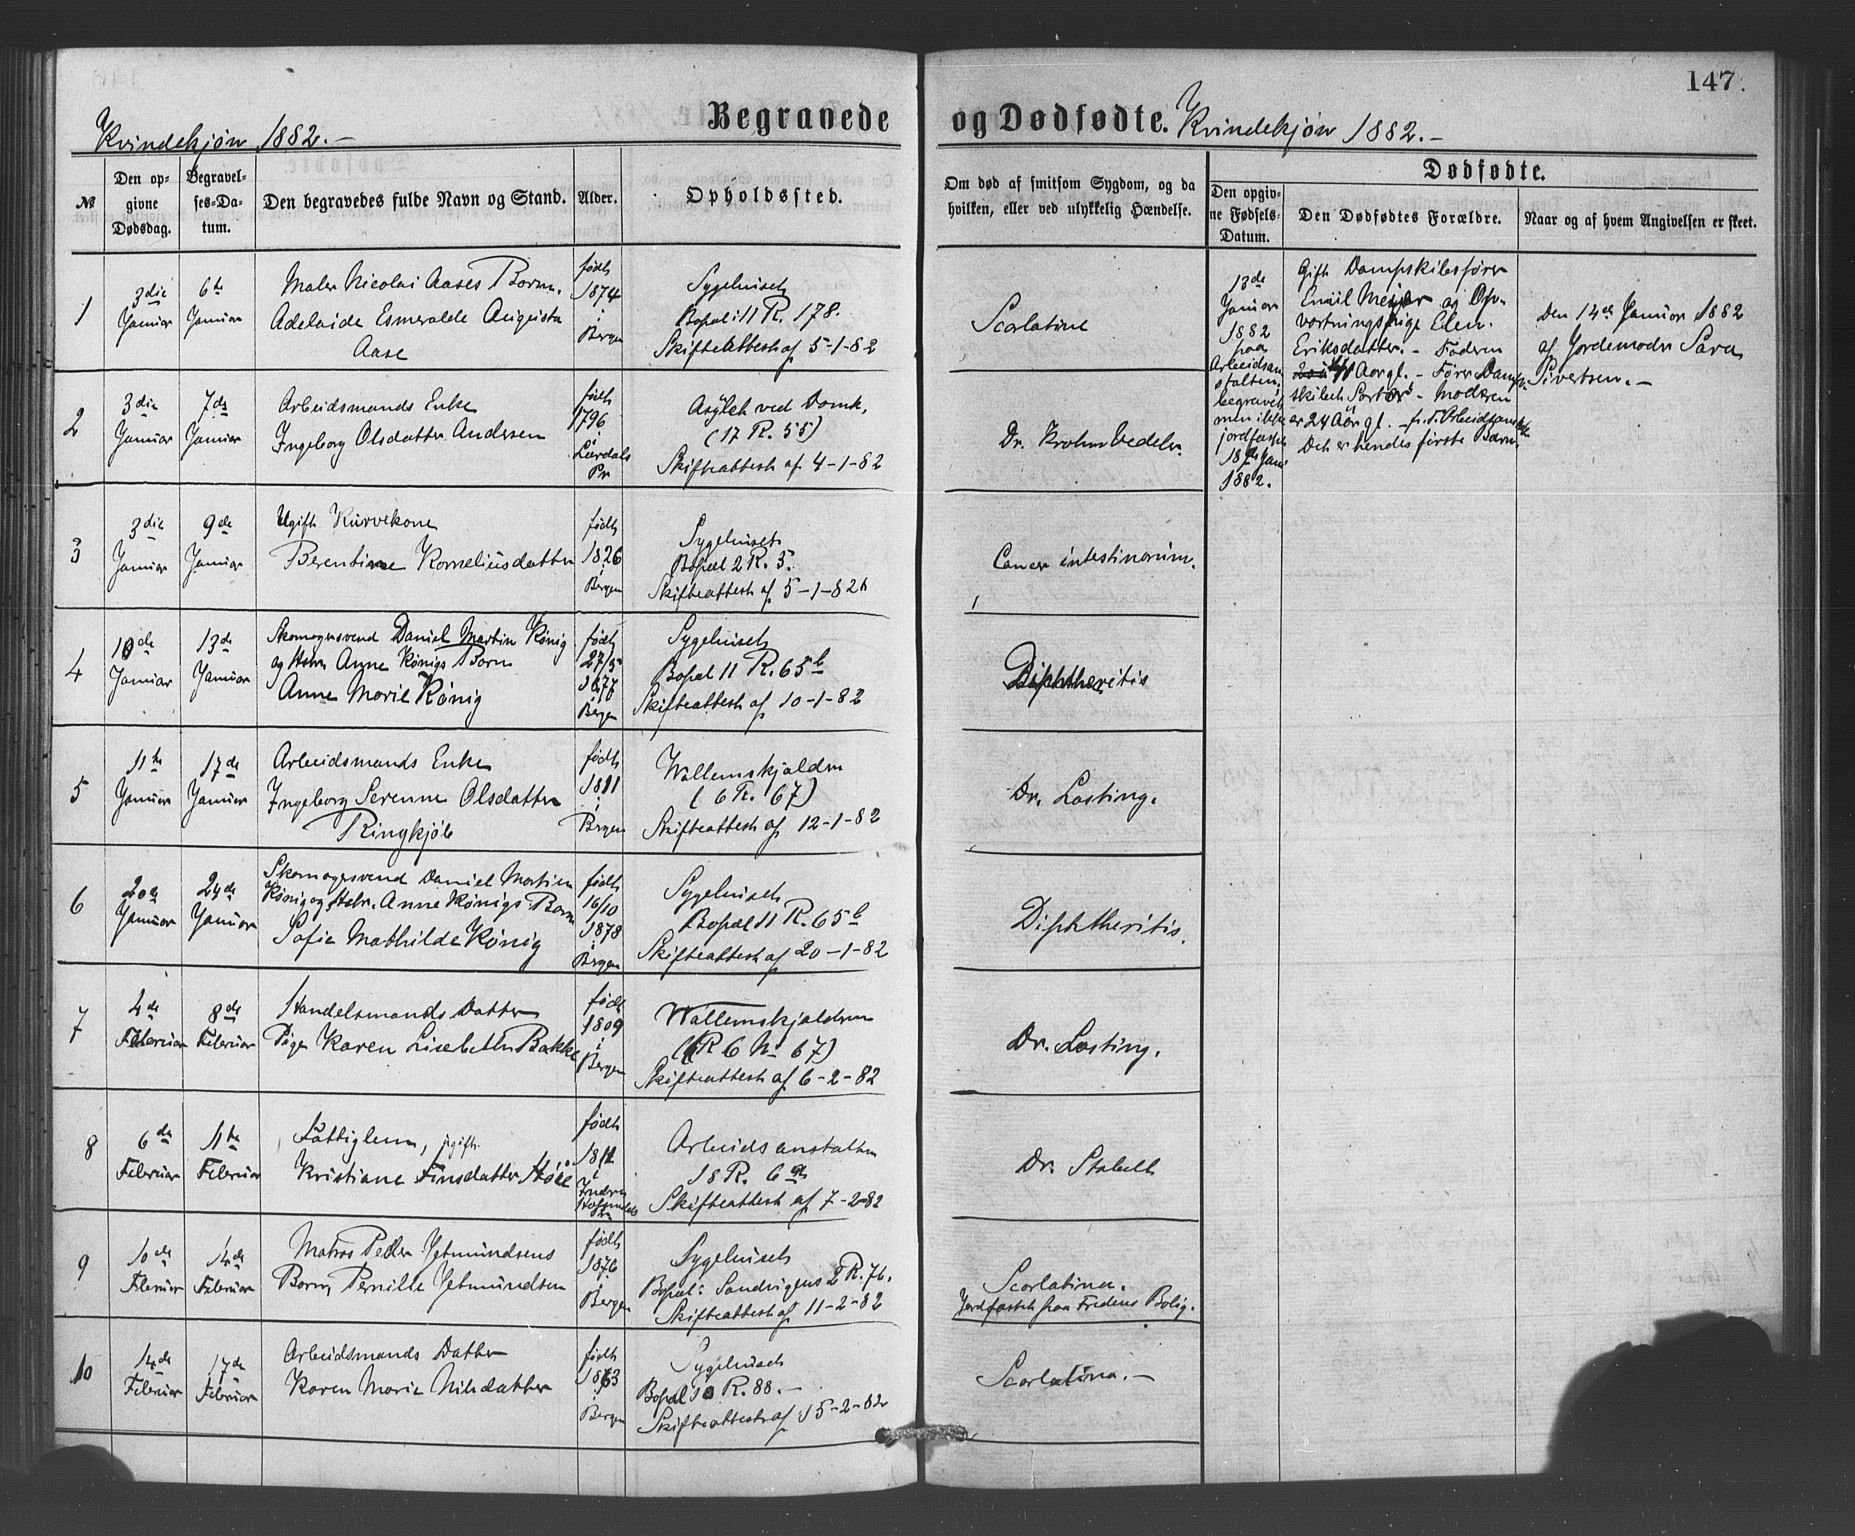 147.
Begravede og Dødfødte.
Kvindekjøn 1882.-
Kvindekjøn 1882.-
№
Den op-
givne
Dødsdag.
Begravel-
ses-Da-
tum.
Den begravedes fulde Navn og Stand.
Alder.
Opholdssted.
Om død af smitsom Sygdom, og da
hvilken, eller ved ulykkelig Hændelse.
Dødfødte.
Den opgiv-
ne Fødsels-
Datum.
Den Dødfødtes Forældre.
Naar og af hvem Angivelsen er skeet.
1
3die
Januar
6te
Januar
Maler Nicolai Aases Barn.
Adelaide Esmeralde Augusta
Aase
født
1874
i
Bergen
Sygehuset
Bopæl: 11 R. 178.
Skifteattest af 5-1-82
Scarlatine
2
3die
Januar
7de
Januar
Arbeidsmands Enke
Ingeborg Olsdatter Andersen
født
1796
i
Lærdals
Pr
Asylet ved Domk.
(17 R. 55)
Skifteattest af 4-1-82
Dr. Krohn Vedeler.
3
3die
Januar
9de
Januar
Ugift Kurvekone
Berentine Korneliusdatter
født
1826
i
Bergen
Sygehuset
Bopæl 2 R. 5.
Skifteattest af 5-1-82
Cancer intestinorum.
4
10de
Januar
13de
Januar
Skomagersvend Daniel Martin König
og Hstr. Anne Königs Barn
Anne Marie König
født
27/5
1877
i
Bergen
Sygehuset
Bopæl 11 R. 65b
Skifteattest af 10-1-82
Diphtheritis
5
11te
Januar
17de
Januar
Arbeidsmands Enke
Ingeborg Serenne Olsdatter
Ringkjöb
født
1811
i
Bergen
Wallemskjælderen
(6 R. 67)
Skifteattest af 12-1-82
Dr. Lasting.
6
20de
Januar
24de
Januar
Skomagersvend Daniel Martin
König og Hstr. Anne Königs Barn
Sofie Mathilde König
født
16/10
1878
i
Bergen
Sygehuset
Bopæl 11 R. 65b
Skifteattest af 20-1-82
Diphtheritis.
7
4de
Februar
8de
Februar
Handelsmands Datter
Pige Karen Lisebeth Bakke
født
1809
i
Bergen
Wallemskjælderen
(R 6 No 67)
Skifteattest af 6-2-82
Dr. Lasting.
8
6de
Februar
11te
Februar
Fattiglem, ugift.
Kristiane Finsdatter
født
i
Indre
Arbeidsanstalten
18 R. 6
Skifteattest af 7-2-82
Dr. Stabell
9
10de
Februar
14de
Februar
Matros Peder Jetmundsens
Barn Pernille Jetmundsen
født
1876
i
Bergen
Sygehuset
Bopæl: Sandvigens 2 R. 76.
Skifteattest af 11-2-82
Scarlatina.
Jordfæstet paa Fredens Bolig.
10
14de
Februar
17de
Februar
Arbeidsmands Datter
Karen Marie Nilsdatter
født
1873
i
Bergen
Sygehuset
Bopæl 10 R. 88.-
Skifteattest af 15-2-82
Scarlatina.-
13de
Januar
1882
paa
Arbeidsan-
stalten,
begravet
men ikke
jordfæstet
18de Jan.
1882.
Gift Dampskibsfører
Emil Meijer og Op-
vartningspige Elen
Eriksdatter.- Faderen
41 Aar gl.- Fører Damp-
skibet - Moderen
er 24 Aar gl.
Det er hendes første Barn.
Den 14de Januar 1882
af Jordemoder Sara
Sivertsen.-